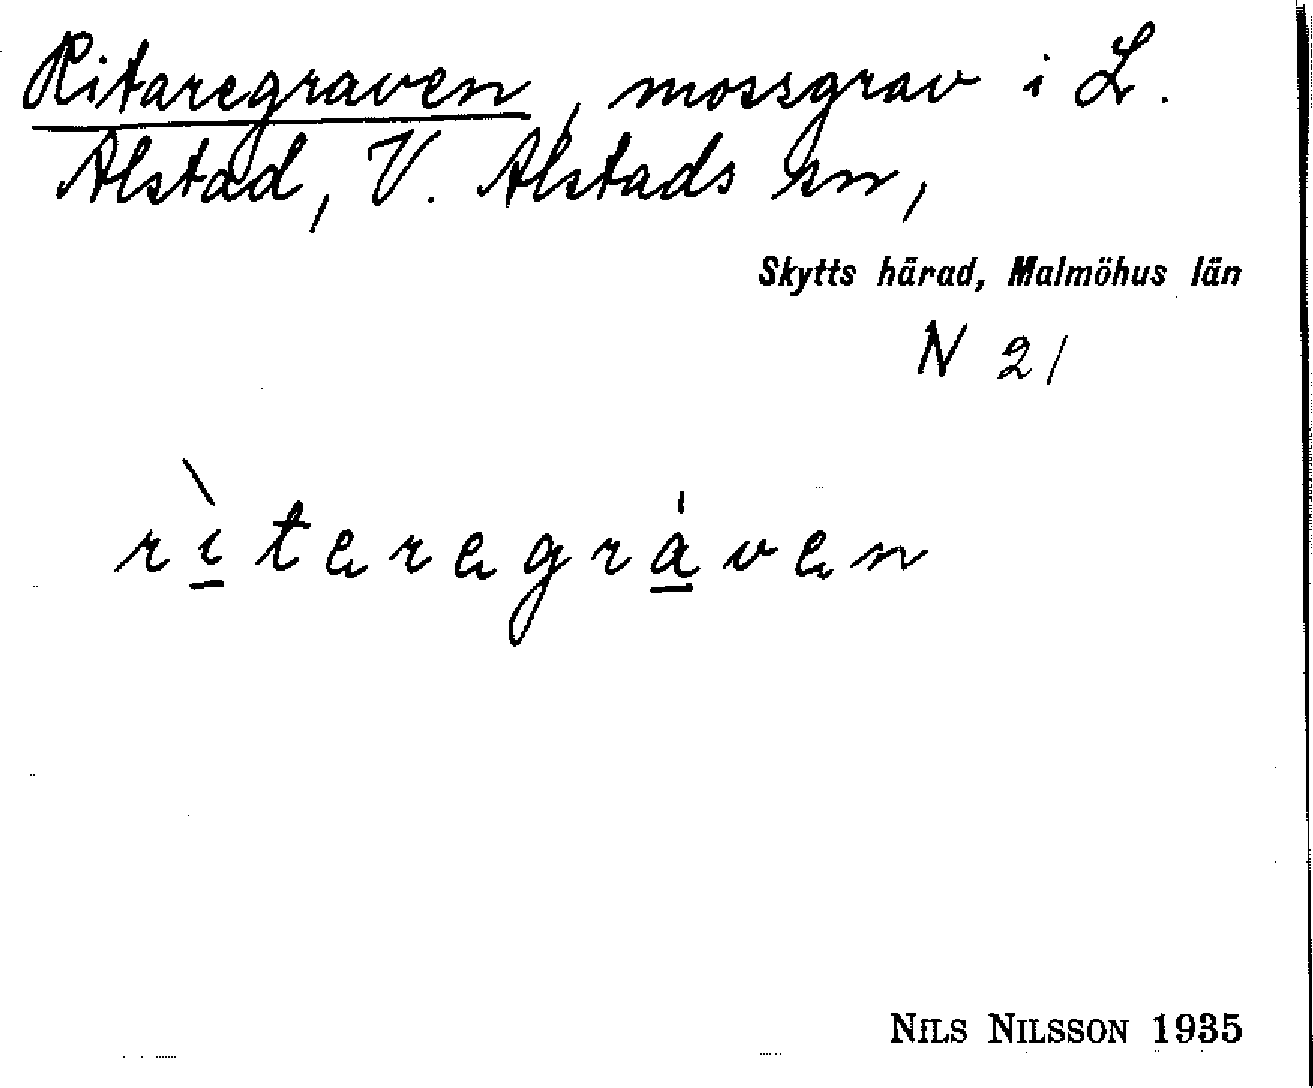 Ritaregraven, mossgrav i L.
Alstad, V. Alstads sn,
Skytts härad, Malmöhus län
N 21
rìteregráven
NILS NILSSON 1935